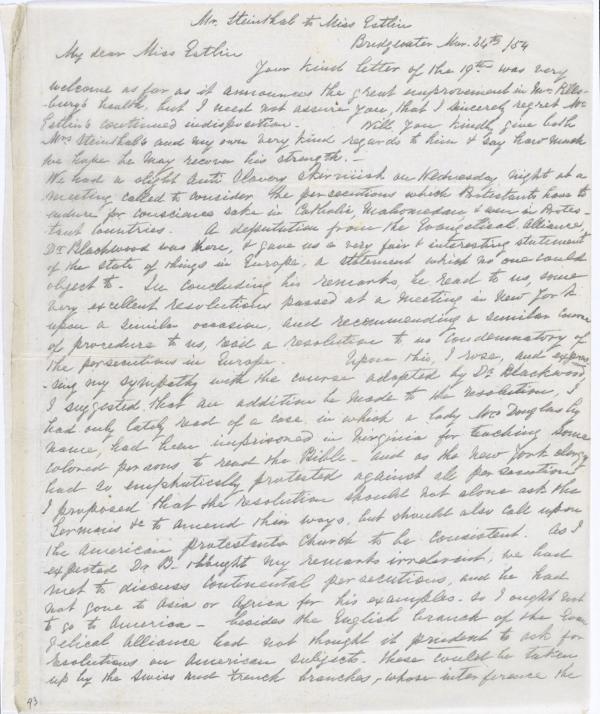 Mr. Steinthal to Miss Estlin
Bridgwater Mar. 24th /54
My dear Miss Estlin
Your kind letter of the 19th was very
welcome as far as it announces the great improvement in Mrs
bury's health, but I need not assure you, that I sincerely regret Mr
Estlin's continued indisposition. Will you kindly give both
Mrs Steinthal's and my own very kind regards to him & say how much
we hope he may recover his strength. —
We had a slight Anti Slavery skirmish on Wednesday night at a
meeting called to consider the persecutions which Protestants have to
endure for conscience sake in Catholic, Mahomedan & even in Protes-
tant countries. A deputation from the Evangelical Alliance,
Dr Blackwood was there, & gave us a very fair & interesting statement
of the state of things in Europe, a statement which no one could
object to. In concluding his remarks, he read to us, some
very excellent resolutions passed at a meeting in New York
upon a similar occasion, and recommending a similar course
of procedure to us, read a resolution to us condemnatory of
the persecutions in Europe. Upon this, I rose, and expres-
-sing my sympathy with the course adopted by Dr Blackwood,
I suggested that an addition be made to the resolution, I
had only lately read of a case in which a lady Mrs Douglas by
name, had been imprisoned in Virginia for teaching some
colored persons to read the Bible - and as the New York clergy
had so emphatically protested against all persecution
I proposed that the resolution should not alone ask the
Germans &c to amend their ways, but should also call upon
the American protestants Church to be consistent. As I
expected Dr B. thought my remarks irrelevant, we had
met to discuss Continental persecutions, and he had
not gone to Asia or Africa for his examples - so I ought not
to go to America — besides the English branch of the Evan
gelical Alliance had not thought it prudent to ask for
resolutions on American subjects - these could be taken
up by the Swiss and French branches, whose interference the
93